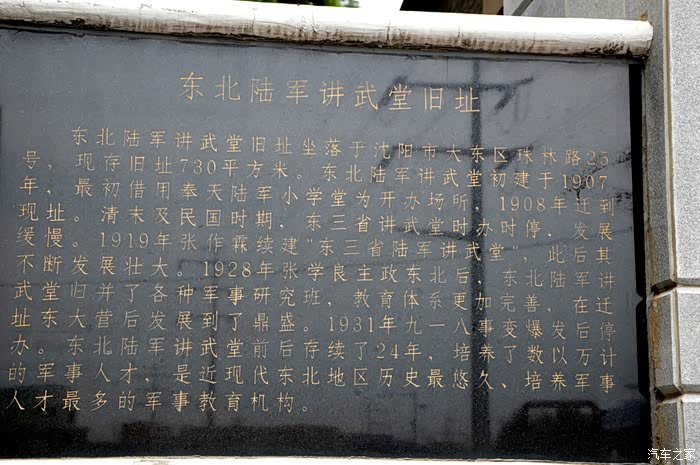 东北陆军讲武堂旧址
东北陆军讲武堂旧址坐落于沈阳市大东区珠林路25
号，现存旧址730平方米。东北陆军讲武堂初建于1907
年，最初借用奉天陆军小学堂为开办场所，1908年迁到
现址。清末及民国时期，东三省讲武堂时办时停，发展
缓慢。1919年张作霖续建"东三省陆军讲武堂"，此后其
不断发展壮大。1928年张学良主政东北后，东北陆军讲
武堂归并了各种军事研究班，教育体系更加完善，在迁
址东大营后发展到了鼎盛。1931年九一八事变爆发后停
办。东北陆军讲武堂前后存续了24年，培养了数以万计
的军事人才，是近现代东北地区历史最悠久、培养军事
人才最多的军事教育机构。
汽车之家